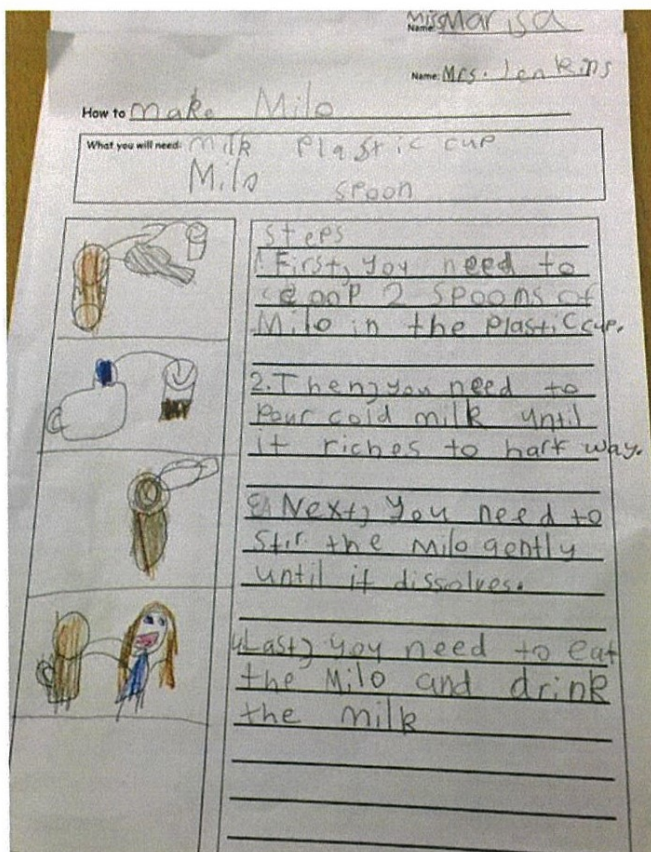 Name: Miss Marisa
Name: Mrs. Jenkins
How to make Milo
What you will need: milk plastic cup
Milo spoon
steps
1. First, you need to
scoop 2 spoons of
Milo in the plastic cup.
2. Then, you need to
pour cold milk until
it riches to harf way.
Next, you need to
stir the Milo gently
until it dissolves.
4 Last, you need to eat
the Milo and drink
the milk